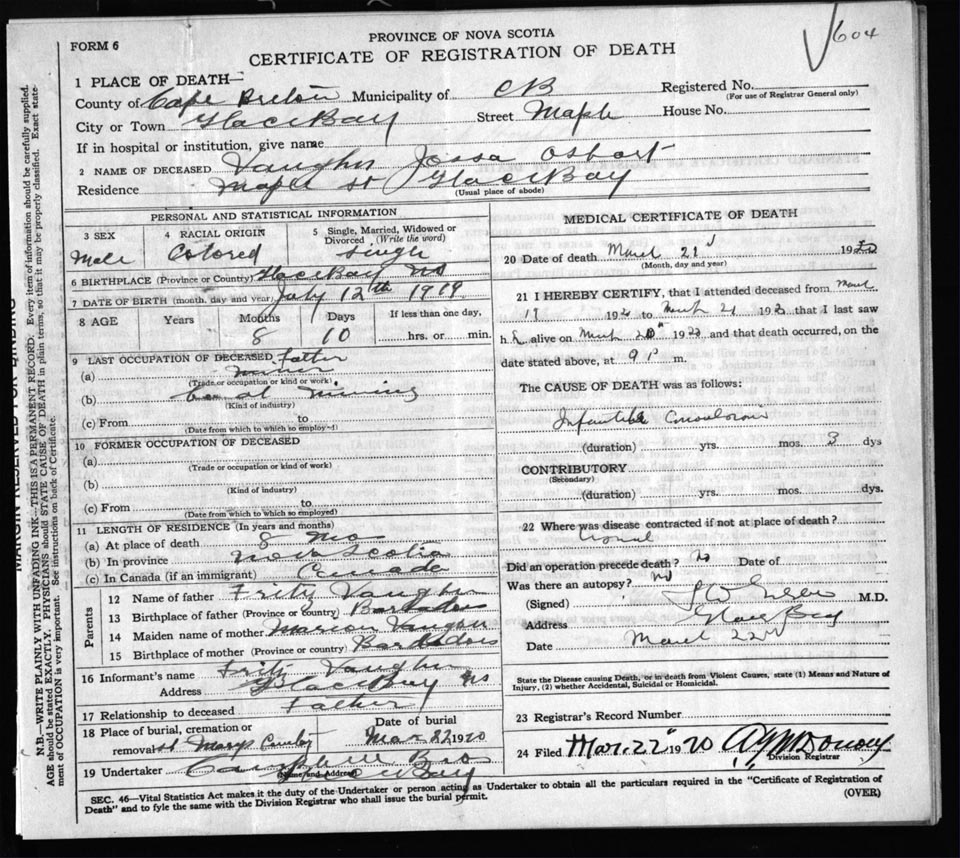 604
FORM 6
PROVINCE OF NOVA SCOTIA
CERTIFICATE OF REGISTRATION OF DEATH
1 PLACE OF DEATH—
County of Cape Breton Municipality of CB Registered No.
(For use of Registrar General only)
City or Town Glace Bay Street Maple House No.
If in hospital or institution, give name
2 NAME OF DECEASED Vaughn Osbort
Residence Maple st Glace Bay
(Usual place of abode)
MARGIN RESERVED FOR BINDING
N.B.—WRITE PLAINLY WITH UNFADING INK—THIS IS A PERMANENT RECORD. Every item of information should be carefully supplied.
AGE should be stated EXACTLY. PHYSICIANS should STATE CAUSE OF DEATH in plain terms, so that it may be properly classified. Exact state-
ment of OCCUPATION is very important. See instructions on back of Certificate.
PERSONAL AND STATISTICAL INFORMATION
3 SEX
Male
4 RACIAL ORIGIN
Colored
5 Single, Married, Widowed or
Divorced (Write the word)
Single
6 BIRTHPLACE (Province or Country) Glace Bay NS
7 DATE OF BIRTH (month, day and year) July 12th 1919
8 AGE Years Months Days If less than one day,
8 10 hrs. or min.
9 LAST OCCUPATION OF DECEASED Father
(a) Miner
(Trade or occupation or kind or work)
(b) Coal Mining
(Kind of industry)
(c) From to
(Date from which to which so employed)
10 FORMER OCCUPATION OF DECEASED
(a)
(Trade or occupation or kind of work)
(b)
(Kind of industry)
(c) From to
(Date from which to which so employed)
11 LENGTH OF RESIDENCE (In years and months)
(a) At place of death 8 mos
(b) In province Nova Scotia
(c) In Canada (if an immigrant) Canada
Parents
12 Name of father Fritz Vaughn
13 Birthplace of father (Province or country) Barbados
14 Maiden name of mother Marion Vaughn
15 Birthplace of mother (Province or country) Barbados
16 Informant's name Fritz Vaughn
Address Glace Bay NS
17 Relationship to deceased Father
18 Place of burial, cremation or
removal St Marys
Date of burial
Mar 22 1920
19 Undertaker Bros
(Name and Address)
Glace Bay
MEDICAL CERTIFICATE OF DEATH
20 Date of death March 21 1920
(Month, day and year)
21 I HEREBY CERTIFY, that I attended deceased from March
192 to March 21 192 that I last saw
h alive on March 20 192 and that death occurred, on the
date stated above, at 9 P m.
The CAUSE OF DEATH was as follows:
Infantile Convulsions
(duration) yrs. mos. 3 dys
CONTRIBUTORY
(Secondary)
(duration) yrs. mos. dys.
22 Where was disease contracted if not at place of death?
Did an operation precede death? no Date of
Was there an autopsy? no
(Signed) M.D.
Address Glace Bay
Date March 22nd
State the Disease causing Death, or in death from Violent Causes, state (1) Means and Nature of
Injury, (2) whether Accidental, Suicidal or Homicidal.
23 Registrar's Record Number
24 Filed Mar. 22 1920
Division Registrar
SEC. 46—Vital Statistics Act makes it the duty of the Undertaker or person acting as Undertaker to obtain all the particulars required in the "Certificate of Registration of
Death" and to fyle the same with the Division Registrar who shall issue the burial permit.
(OVER)